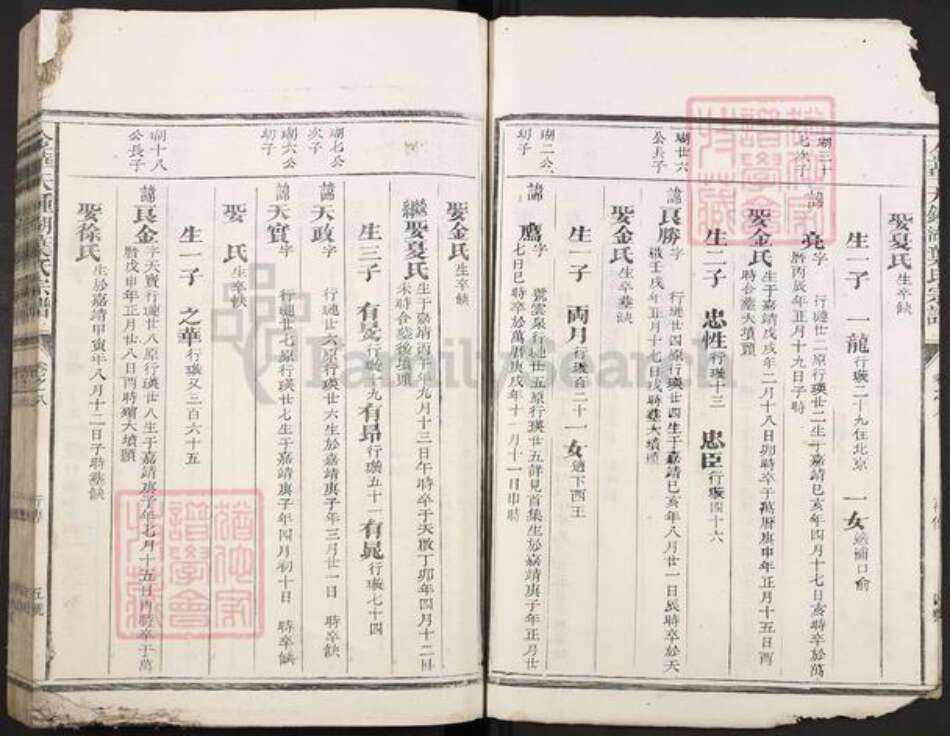 娶夏氏 生卒缺
生一子 一龍 行璇二十九住北京 一女 適浦口俞
瑚二十七次子
諱亮 字 行璉廿二原行瑛廿二生于嘉靖已亥年四月十七日亥時卒於萬
曆丙辰年正月十九日子時
娶金氏 生于嘉靖戊戌年二月十八日卯時卒于萬曆庚申年正月十五日酉
時合塟大墳頭
生二子 忠性 行璇十三 忠臣 行璇四十六
瑚廿六公長子
諱良勝 字 行璉廿四原行瑛廿四生于嘉靖已亥年八月廿一日辰時卒於天
啟壬戌年正月十七日戌時塟大墳頭
娶金氏 生卒塟缺
生一子 兩月 行璇百二十 一女 適下西王
瑚二公幼子
諱鷹 字 號雲泉行璉廿五原行瑛廿五詳見首集生於嘉靖庚子年正月廿
七日巳時卒於萬曆庚戌年十一月十一日申時
娶金氏 生卒缺
繼娶夏氏 生于嘉靖丙午年九月十三日午時卒于天啟丁卯年四月十二日
未時合塟後墳頭
生三子 有旻 行璇一十九 有昂 行璇五十一 有晁 行璇七十四
瑚七公次子
諱天政 字 行璉廿六原行瑛廿六生於嘉靖庚子年三月廿一日 時卒缺
瑚六公幼子
諱天實 字 行璉廿七原行瑛廿七生于嘉靖庚子年四月初十日 時卒缺
娶 氏 生卒缺
生一子 之華 行璇又三百六十五
瑚十八公長子
諱良金 字天寶行璉廿八原行瑛廿八生于嘉靖庚子年七月十五日酉時卒于萬
曆戊申年正月廿八日酉時殯大墳頭
娶徐氏 生於嘉靖甲寅年八月十二日子時塟缺
卷之八
行傳
五號
FamilySearch